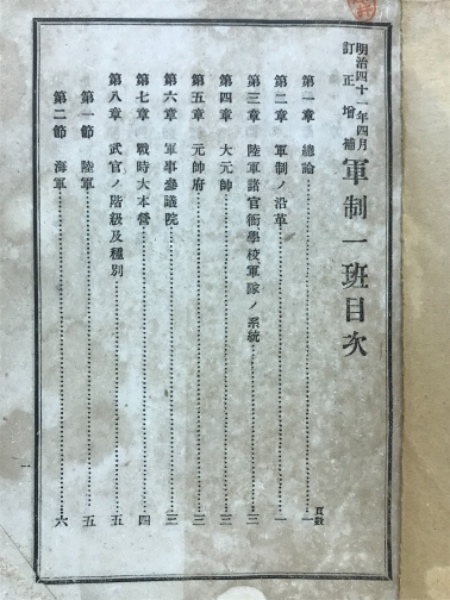 明治四十一年四月
訂正增補
軍制一班目次
頁數
第一章 總論 一
第二章 軍制ノ沿革 一
第三章 陸軍諸官衙學校軍隊ノ系統 三
第四章 大元帥 三
第五章 元帥府 三
第六章 軍事參議院 三
第七章 戰時大本營 四
第八章 武官ノ階級及種別 五
第一節 陸軍 五
第二節 海軍 六
一